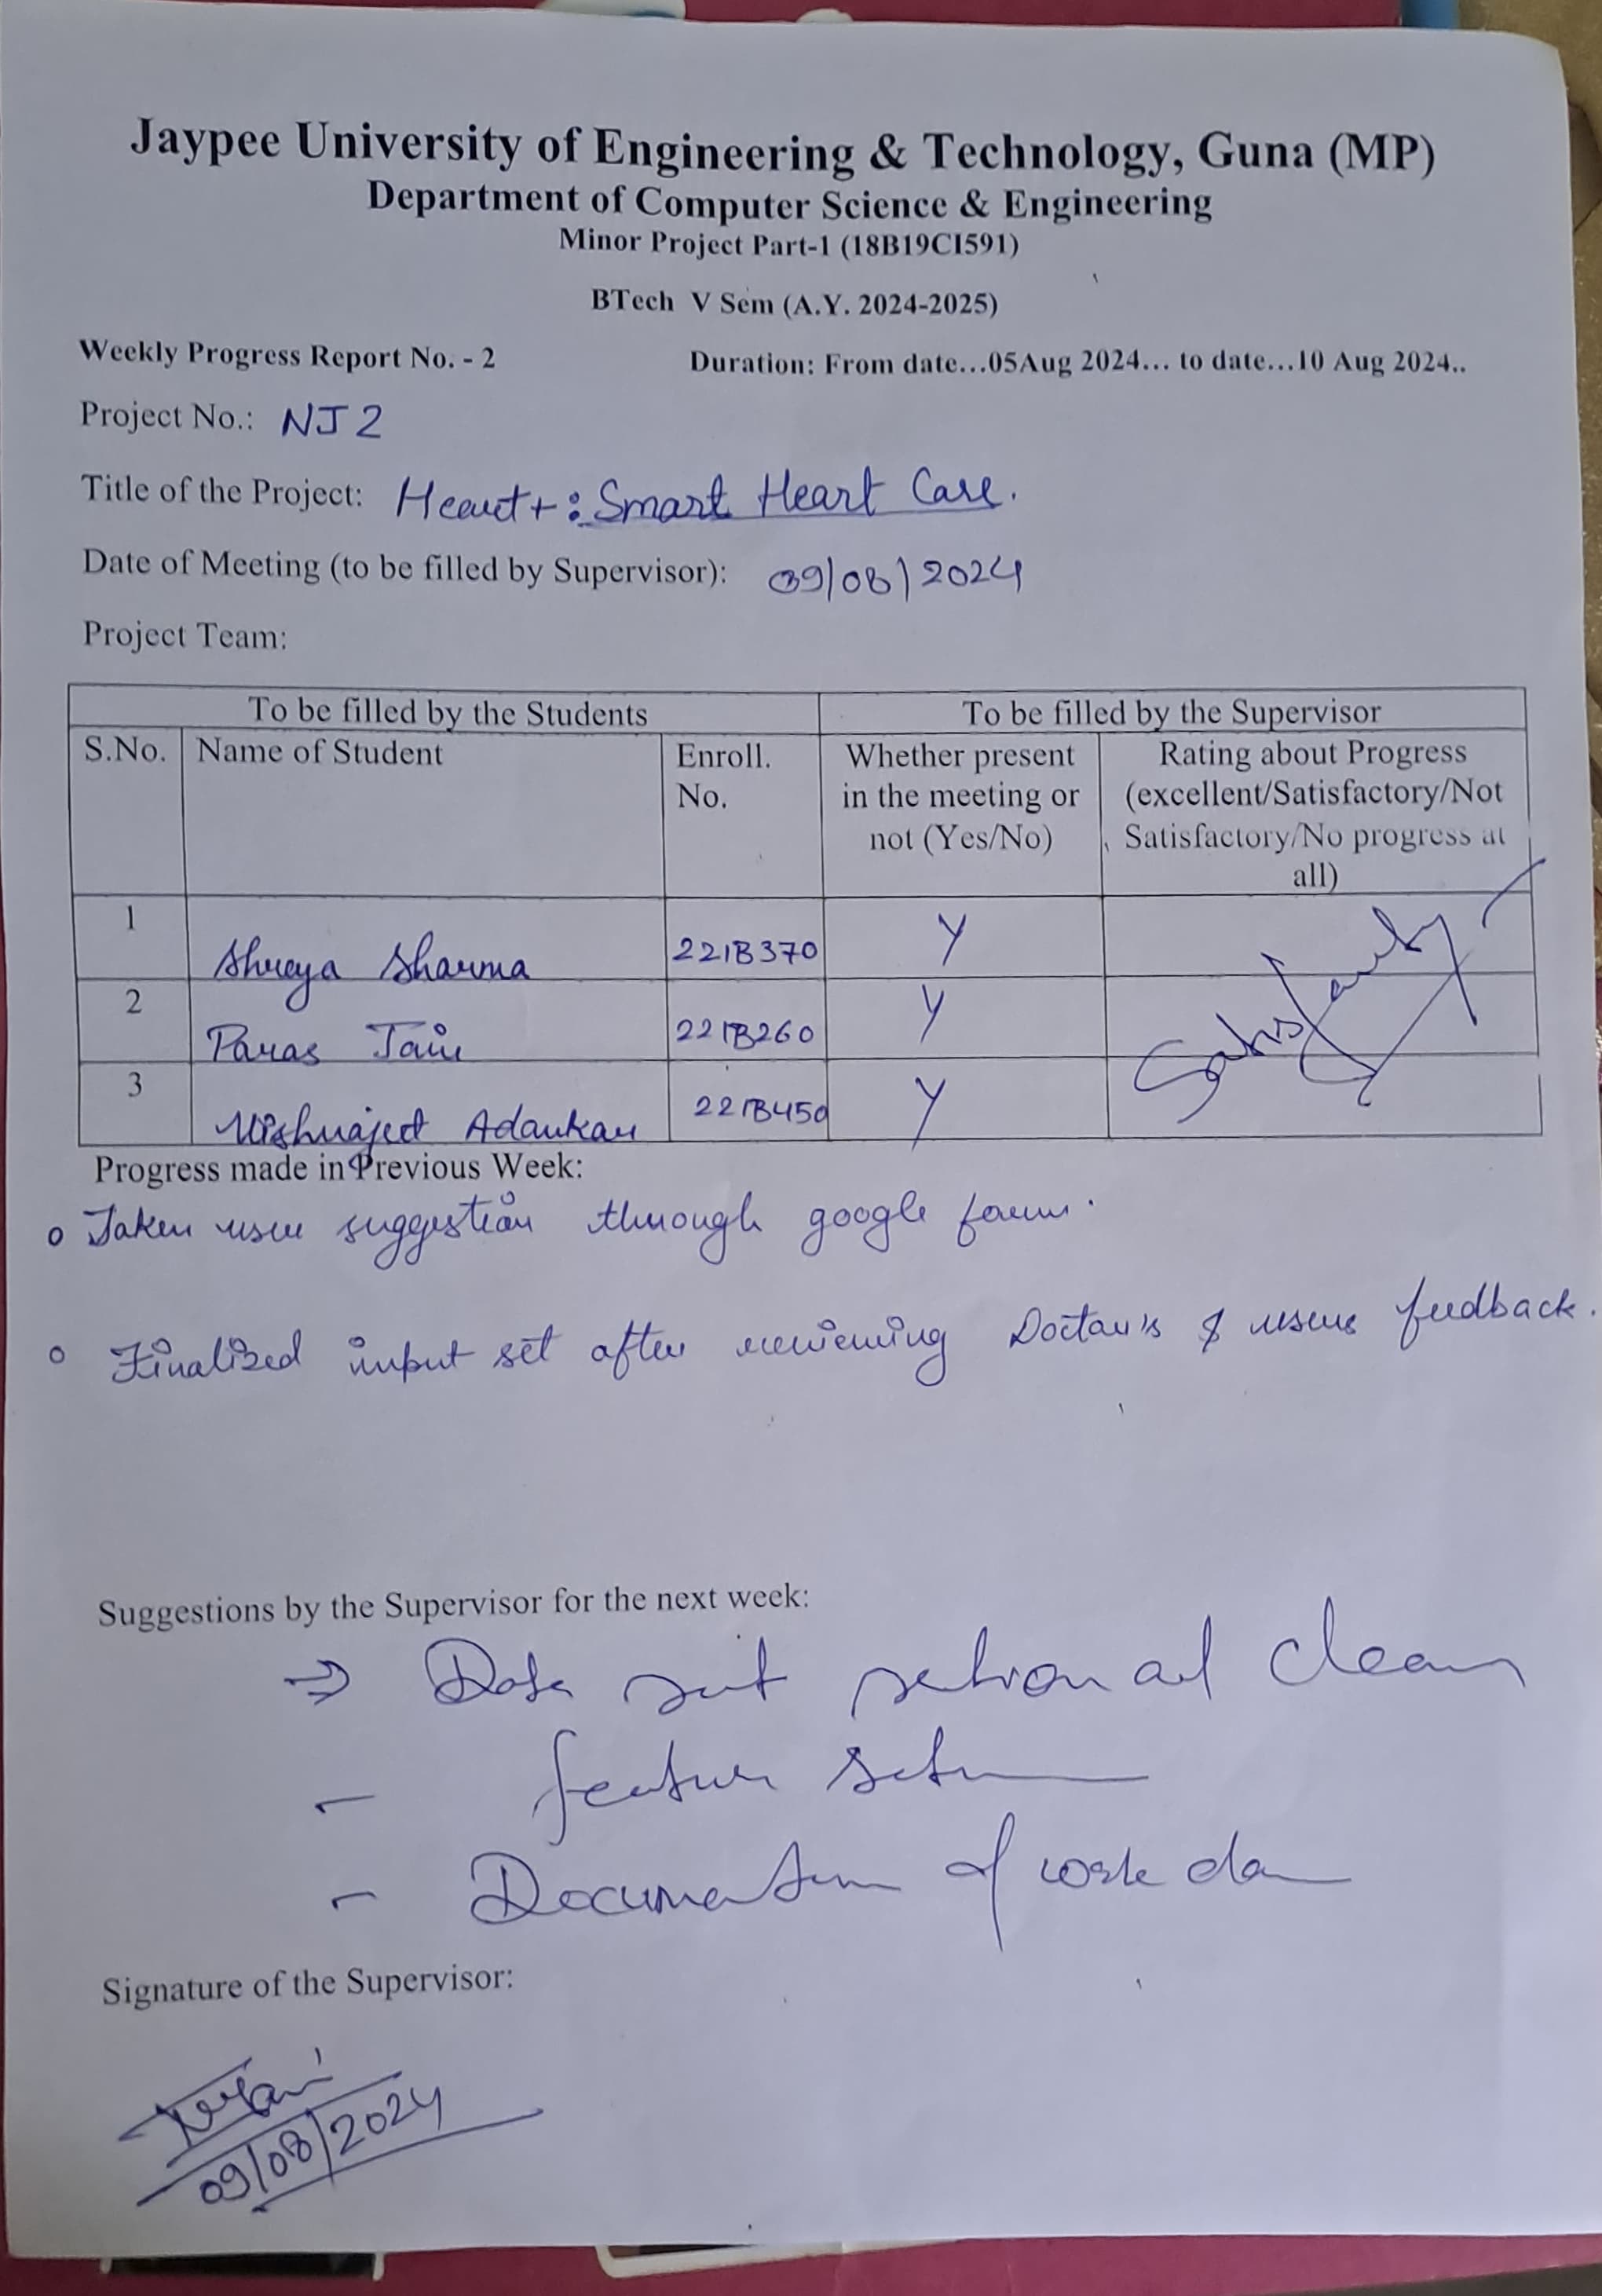 Jaypee University of Engineering & Technology, Guna (MP)
Department of Computer Science & Engineering
Minor Project Part-1 (18B19CI591)
BTech V Sem (A.Y. 2024-2025)
Weekly Progress Report No. - 2 Duration: From date...05Aug 2024... to date...10 Aug 2024..
Project No.: NJ2
Title of the Project: Heart+: Smart Heart Care.
Date of Meeting (to be filled by Supervisor): 09/08/2024
Project Team:
To be filled by the Students To be filled by the Supervisor
S.No. Name of Student Enroll. No. Whether present in the meeting or not (Yes/No) Rating about Progress (excellent/Satisfactory/Not Satisfactory/No progress at all)
1 Shreya Sharma 221B370 Y
2 Paras Jain 221B260 Y
3 Vishwajeet Adankar 221B450 Y
Satisfactory
Progress made in Previous Week:
Taken user suggestion through google form.
Finalized input set after reviewing Doctor's & users feedback.
Suggestions by the Supervisor for the next week:
⇒ Data set and clean
- feature
- Documentation of work done
Signature of the Supervisor:
09/08/2024